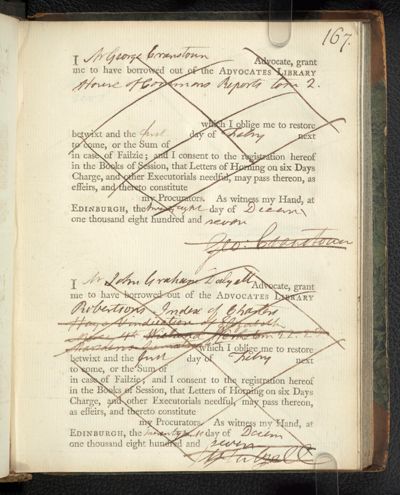 167.
I Mr George Cranstoun Advocate, grant
me to have borrowed out of the ADVOCATES LIBRARY
House of Commons Reports Vol 2.
which I oblige me to restore
betwixt and the first day of Febry next
to come, or the Sum of
in case of Failzie; and I consent to the registration hereof
in the Books of Session, that Letters of Horning on six Days
Charge, and other Executorials needful, may pass thereon, as
effeirs, and thereto constitute
my Procurators. As witness my Hand, at
EDINBURGH, the day of Decem
one thousand eight hundred and seven
Geo: Cranstoun
I Mr John Graham Dalyell Advocate, grant
me to have borrowed out of the ADVOCATES LIBRARY
Robertsons Index of Charters
which I oblige me to restore
betwixt and the first day of Febry next
to come, or the Sum of
in case of Failzie; and I consent to the registration hereof
in the Books of Session, that Letters of Horning on six Days
Charge, and other Executorials needful, may pass thereon,
as effeirs, and thereto constitute
my Procurators. As witness my Hand, at
EDINBURGH, the day of Decem
one thousand eight hundred and seven